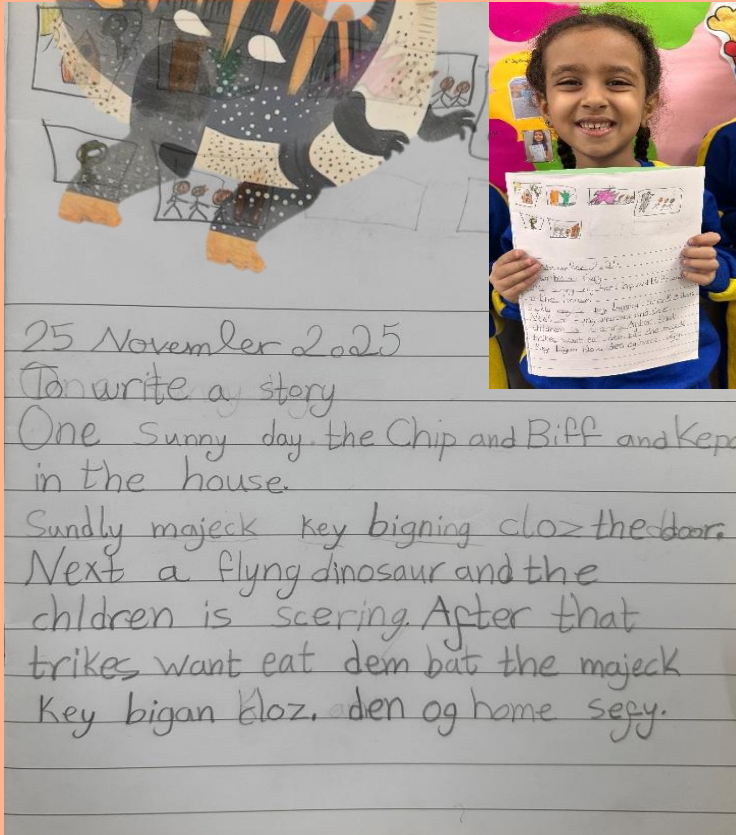 25 November 2025
To write a story
One sunny day the Chip and Biff and Kepa
in the house.
Sundly majeck key bigning cloz the door.
Next a flyng dinosaur and the
chldren is scering. After that
trikes want eat dem bat the majeck
key bigan kloz. den og home sefy.